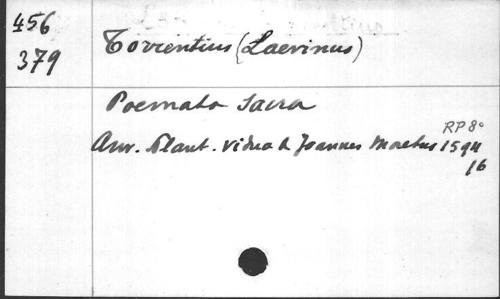 456
379
Torrentius (Laevinus)
Poemata Sacra
RP 8°
Anv. Plant. vidua & Joannes Moetus 1594
16